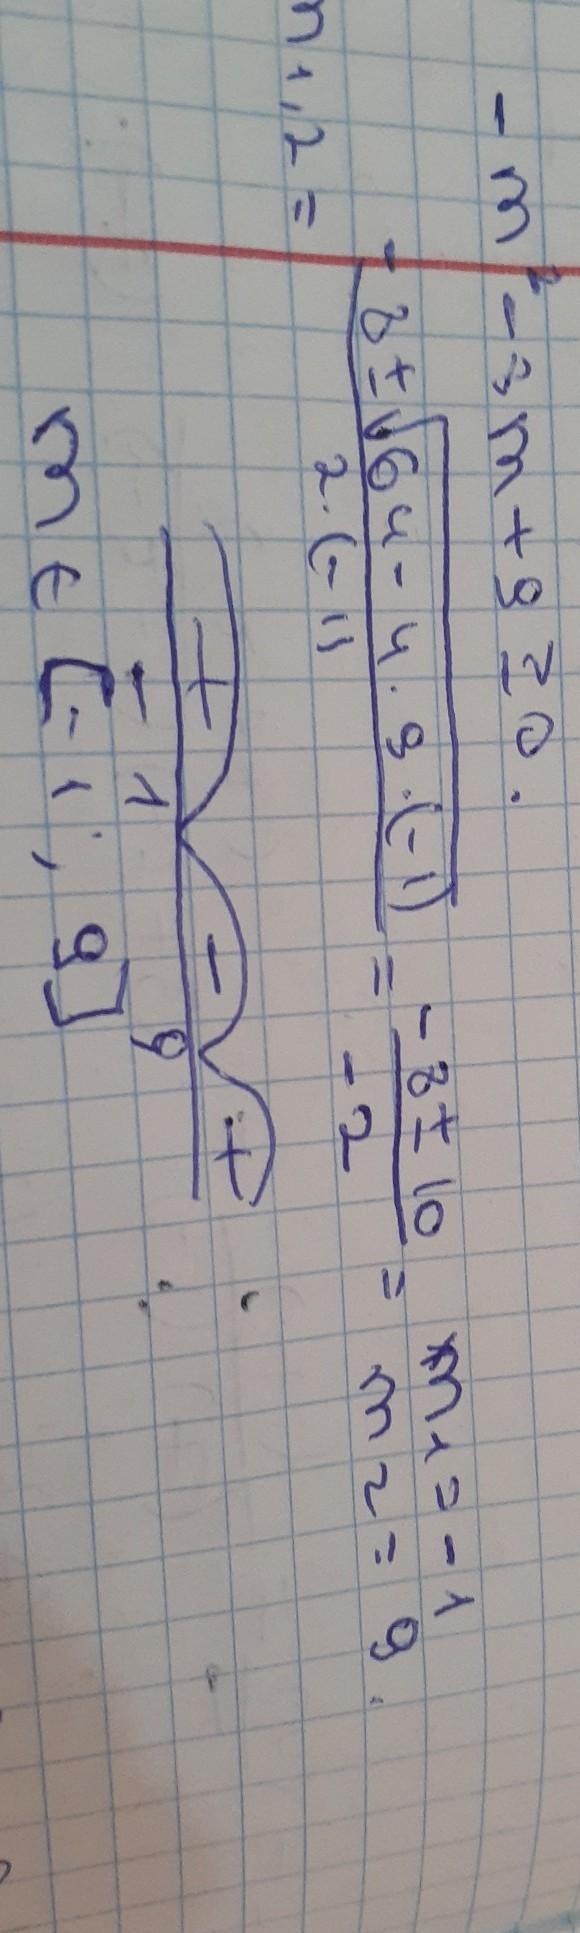 - m² - 3m + 9 ≥ 0.
m 1,2 = (-8 ± √(64 - 4 · 9 · (-1))) / (2 · (-1)) = (-8 ± 10) / (-2) = m 1 = -1
m 2 = 9.
+ - +
-1 9
m ∈ [-1; 9]